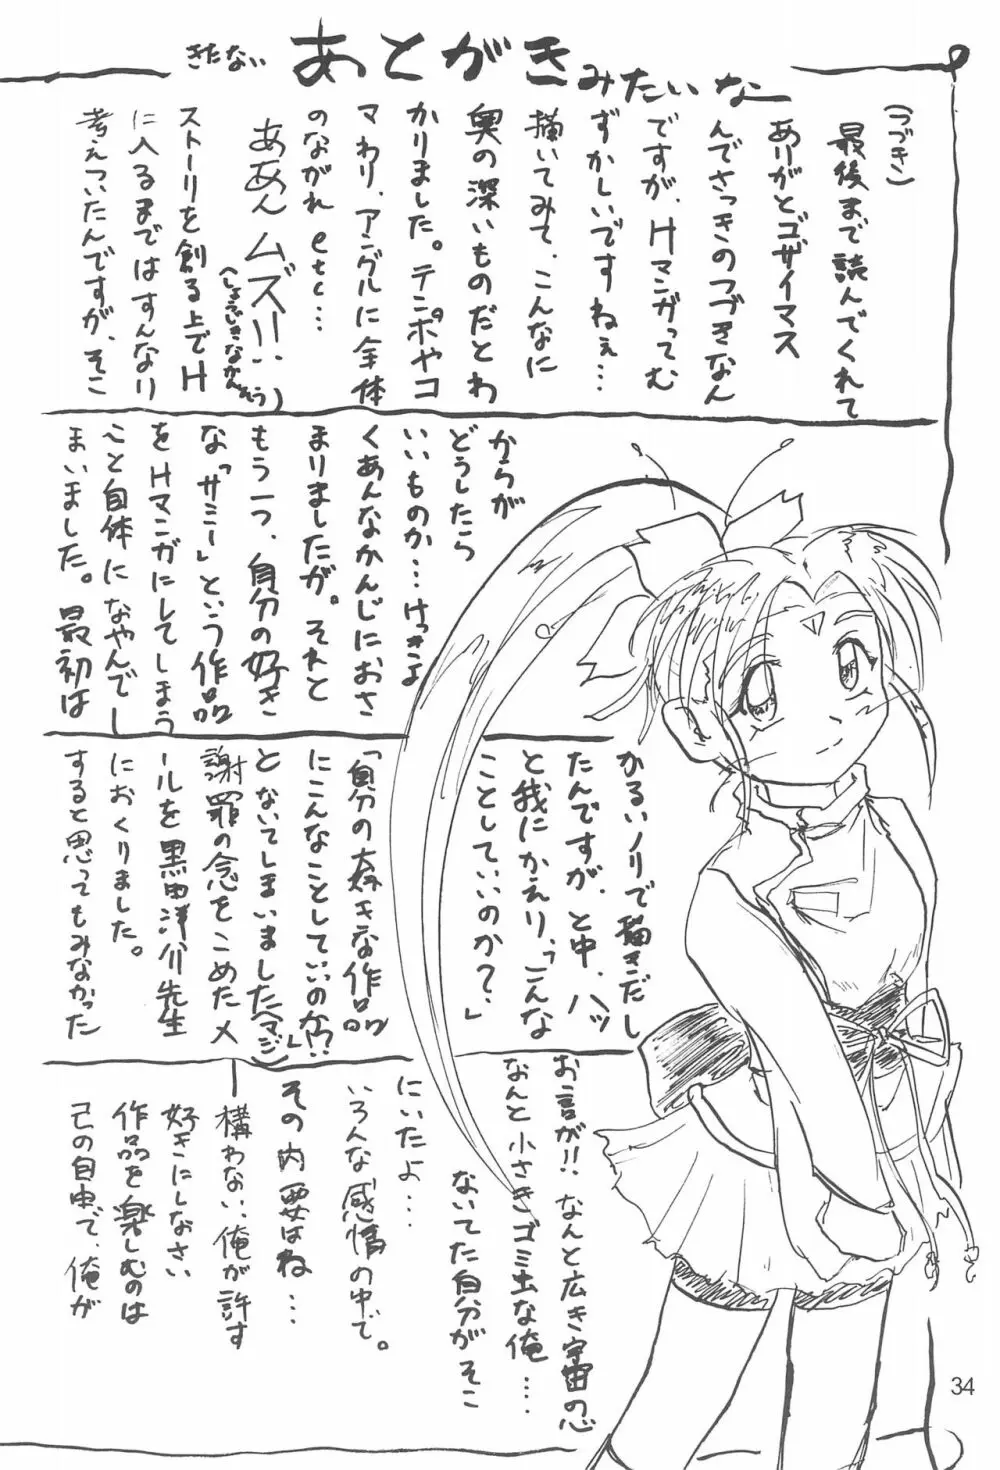 きたない あとがき みたいなー
(つづき)
最後まで読んでくれて
ありがとゴザイマス
んでさっきのつづきなん
ですが、Hマンガってむ
ずかしいですねぇ…
描いてみて、こんなに
奥の深いものだとわ
かりました。テンポやコ
マわり、アングルに全体
のながれ etc…
ああん ムズーい
(しょうじきなかんそう)
ストーリを創る上でH
に入るまではすんなり
考えついたんですが、そこ
からが
どうしたら
いいものか…けっきょ
くあんなかんじにおさ
まりましたが。それと
もう一つ、自分の好き
な「サミー」という作品
をHマンガにしてしまう
こと自体になやんでし
まいました。最初は
かるいノリで描きだし
たんですが、と中、ハッ
と我にかえり、「こんな
ことしていいのか?」
「自分の大好きな作品
にこんなことしていいのか!?」
とないてしまいました(マジ)
謝罪の念をこめたメ
ールを黒田洋介先生
におくりました。
すると思ってもみなかった
お言が!! なんと広き宇宙の心
なんと小さきゴミ土な俺…
ないてた自分がそこ
にいたよ…
いろんな感情の中で。
その内要はね…
ー構わない、俺が許す
好きにしなさい
作品を楽しむのは
己の自由で、俺が
34